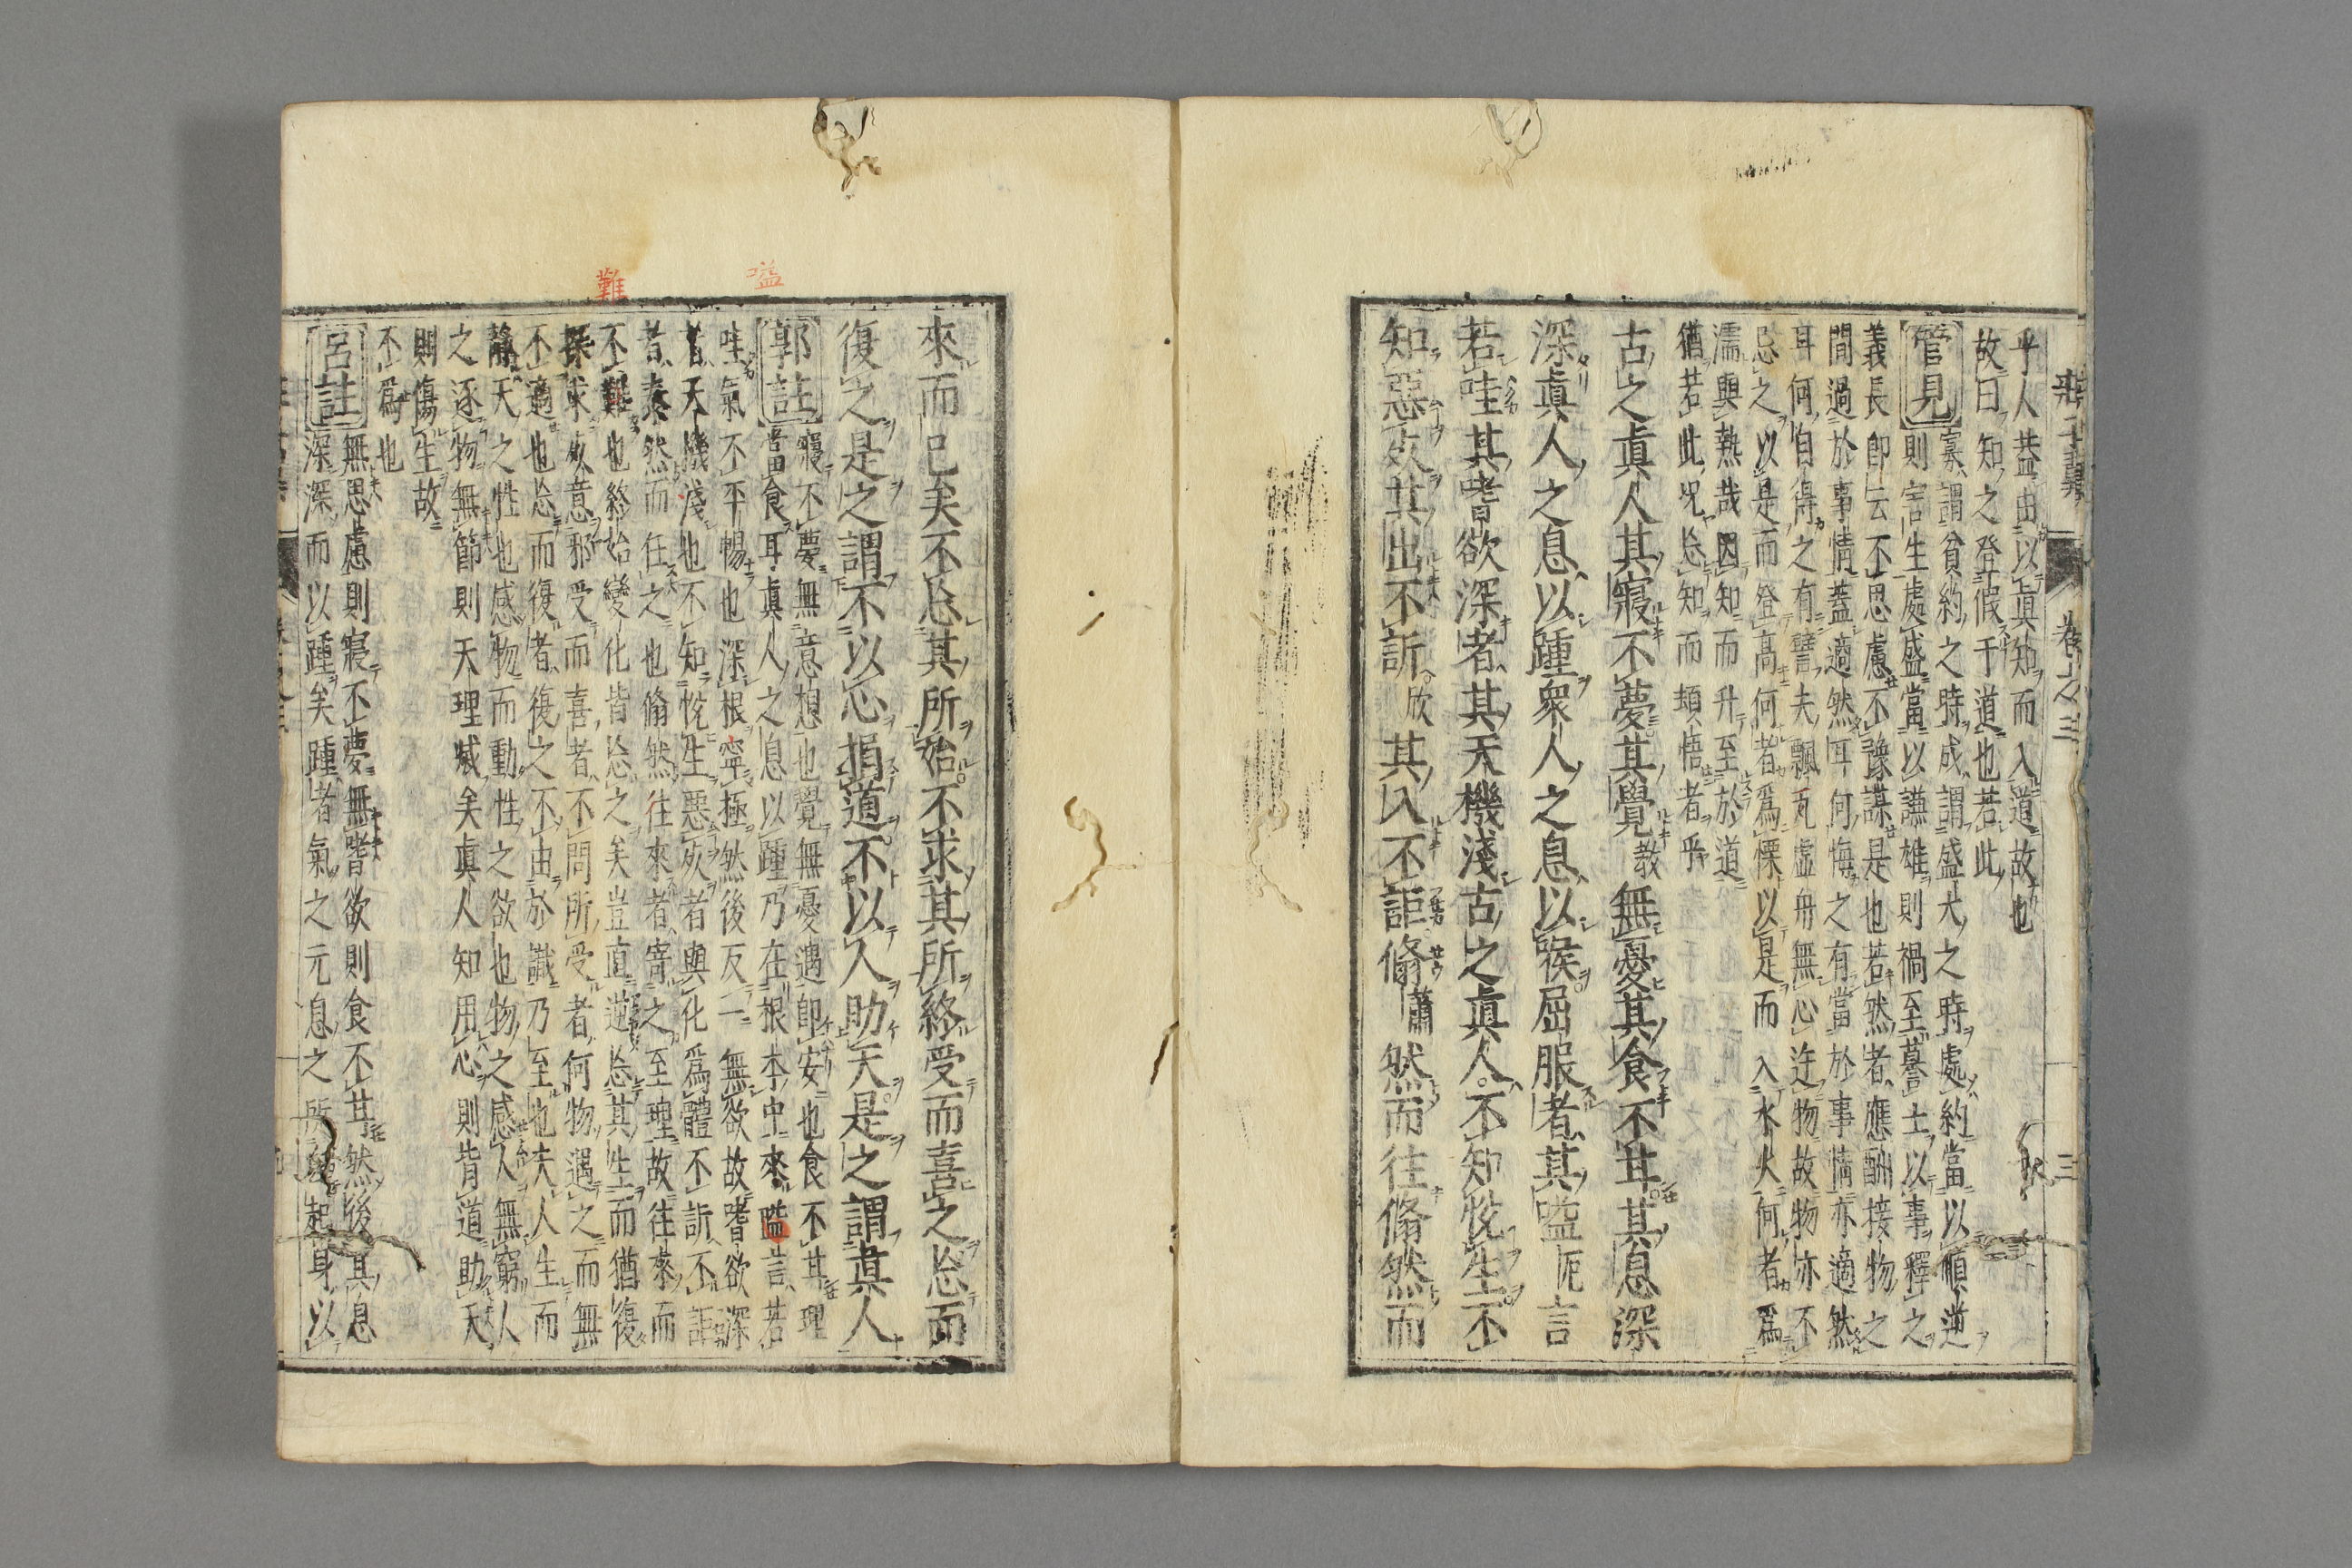 乎人葢由以眞知而入道故也
故曰知之登假于道也若此
管見
寡謂貧約之時成謂盛大之時處約當以順逆
則害生處盛當以謙雄則禍至謩士以事釋之
義長卽云不思慮不豫謀是也若然者應酬接物之
間過於事情蓋適然耳何悔之有當於事情亦適然
耳何自得之有譬夫飄瓦虛舟無心迕物故物亦不
忌之以是而登高何者爲慄以是而入水火何者爲
濡與熱哉因知而升至於道
猶若此况忘知而頓悟者乎
古之眞人其寢不夢其覺教無憂其食不甘其息深
深眞人之息以踵衆人之息以喉屈服者其嗌厄言
若哇其嗜欲深者其天機淺古之眞人不知悅生不
知惡死其出不訢欣其入不詎翛蕭然而往翛然而
來而已矣不忘其所始不求其所終受而喜之忘而
復之是之謂不以心捐道不以人助天是之謂眞人
郭註
寢不夢無意想也覺無憂遇卽安也食不甘理
當食耳眞人之息以踵乃在根本中來嗌言若
哇氣不平暢也深根寧極然後反一無欲故嗜欲深
者天機淺也不知悅生惡死者與化爲體不訢不詎
者泰然而任之也翛然往來者寄之至理故往來而
不難也終始變化皆忘之矣豈直逆忘其生而猶復
探求死意邪受而喜者不問所受者何物遇之而無
不適也忘而復者復之不由於識乃至也夫人生而
靜天之性也感物而動性之欲也物之感人無窮人
之逐物無節則天理滅矣眞人知用心則背道助天
則傷生故
不爲也
呂註
無思慮則寢不夢無嗜欲則食不甘然後其息
深深而以踵矣踵者氣之元息之所起身以
難
嗌
卷之三
三